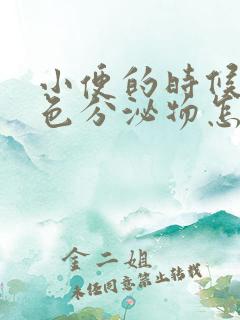 小便的时候
色分泌物怎
金二姐
未经同意禁止转载